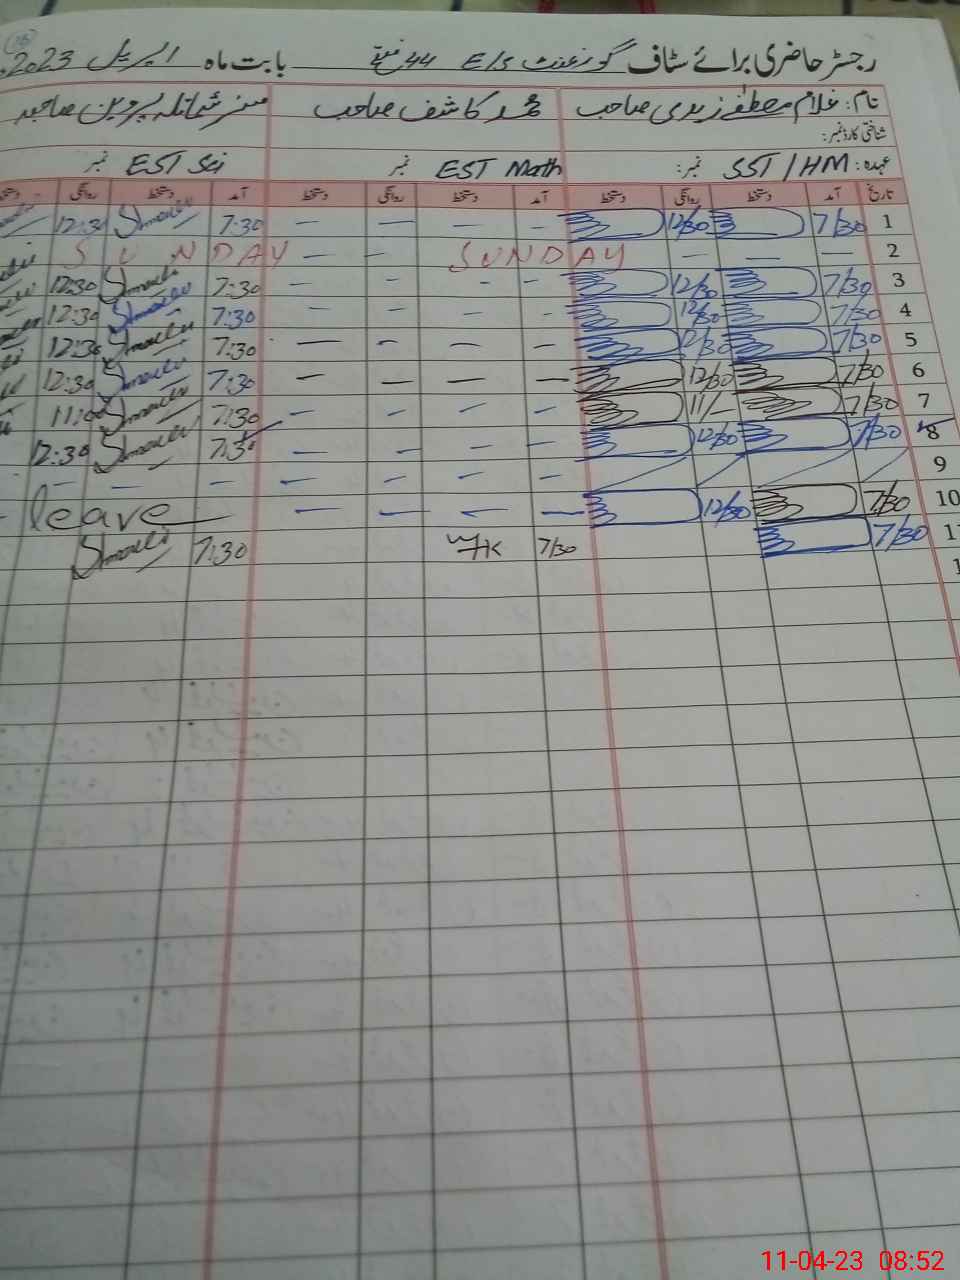 رجسٹر حاضری برائے سٹاف گورنمنٹ E/S 44 بابت ماہ اپریل 2023
نام: غلام مصطفےٰ زیدی صاحب محمد کاشف صاحب مسز شمائلہ پروین صاحبہ
شناختی کارڈ نمبر:
عہدہ: SST/HM نمبر: EST Math نمبر EST Sci نمبر
تاریخ آمد دستخط روانگی دستخط آمد دستخط روانگی دستخط آمد دستخط روانگی دستخط
1 7/30 12/30 — — — — 7:30 12:30
2 — — — SUNDAY — — SUNDAY
3 7/30 12/30 - - - — 7:30 12:30
4 7/30 12/30 - — — — 7:30 12:30
5 7/30 12/30 - — - — 7:30 12:30
6 7/30 12/30 — — — — 7:30 12:30
7 7/30 11/— — — — — 7:30 11:00
8 7/30 12/30 — — — — 7:30 12:30
9 — — — — — — —
10 7/30 12/30 — — — — leave
11 7/30 7/30 7:30
11-04-23 08:52